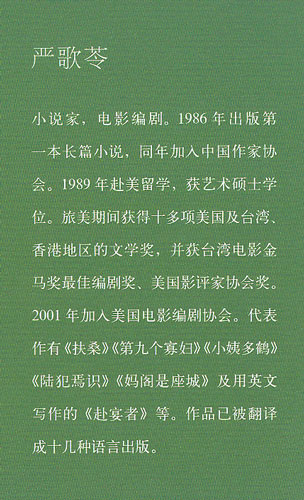 严歌苓
小说家，电影编剧。1986 年出版第
一本长篇小说，同年加入中国作家协
会。1989 年赴美留学，获艺术硕士学
位。旅美期间获得十多项美国及台湾、
香港地区的文学奖，并获台湾电影金
马奖最佳编剧奖、美国影评家协会奖。
2001 年加入美国电影编剧协会。代表
作有《扶桑》《第九个寡妇》《小姨多鹤》
《陆犯焉识》《妈阁是座城》及用英文
写作的《赴宴者》等。作品已被翻译
成十几种语言出版。